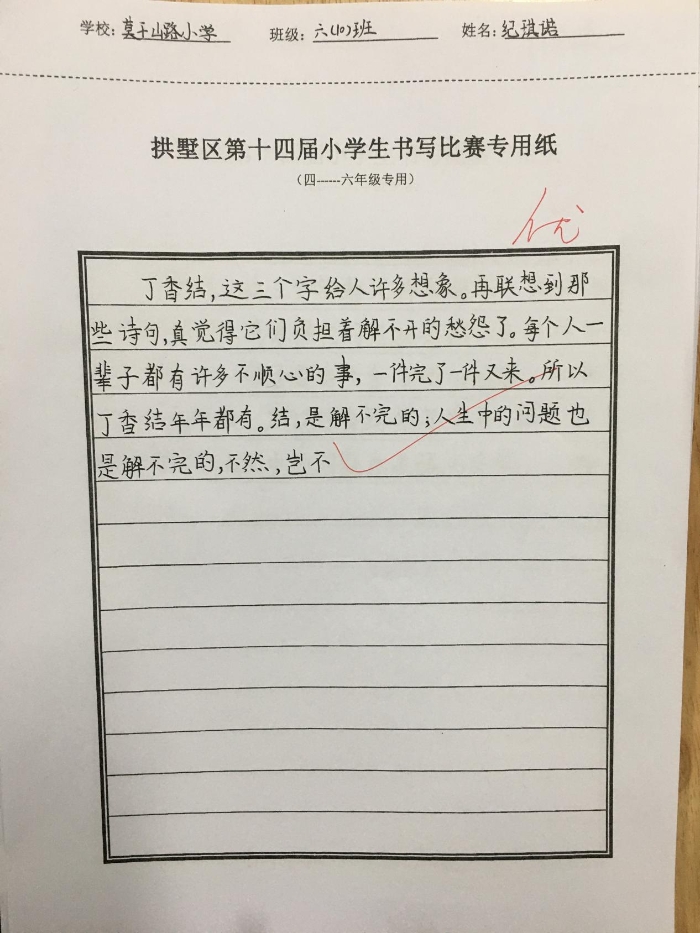 学校：莫干山路小学 班级：六(10)班 姓名：纪琪诺
拱墅区第十四届小学生书写比赛专用纸
（四------六年级专用）
优
丁香结，这三个字给人许多想象。再联想到那
些诗句，真觉得它们负担着解不开的愁怨了。每个人一
辈子都有许多不顺心的事，一件完了一件又来。所以
丁香结年年都有。结，是解不完的；人生中的问题也
是解不完的，不然，岂不